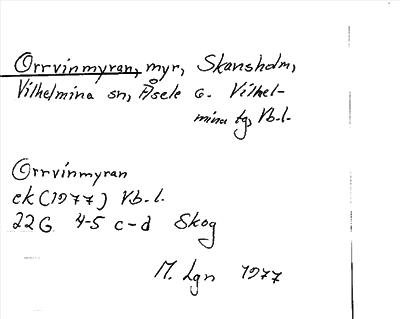 Orrvinmyran, myr, Skansholm,
Vilhelmina sn, Åsele o. Vilhel-
mina tg, Vb.l.
Orrvinmyran
ek (1977) Vb.l.
22G 4-5 c-d Skog
M. Lgn 1977